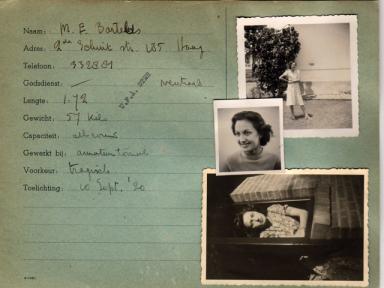 Naam: M. E. Bartelds
Adres: 2de Schuyt str. 185. Haag
Telefoon: 332891
Godsdienst: — neutraal
Lengte: 1.72
Gewicht: 57 kilo
Capaciteit:
Gewerkt bij: amateur tooneel
Voorkeur: tragisch
Toelichting: 10 Sept. '20